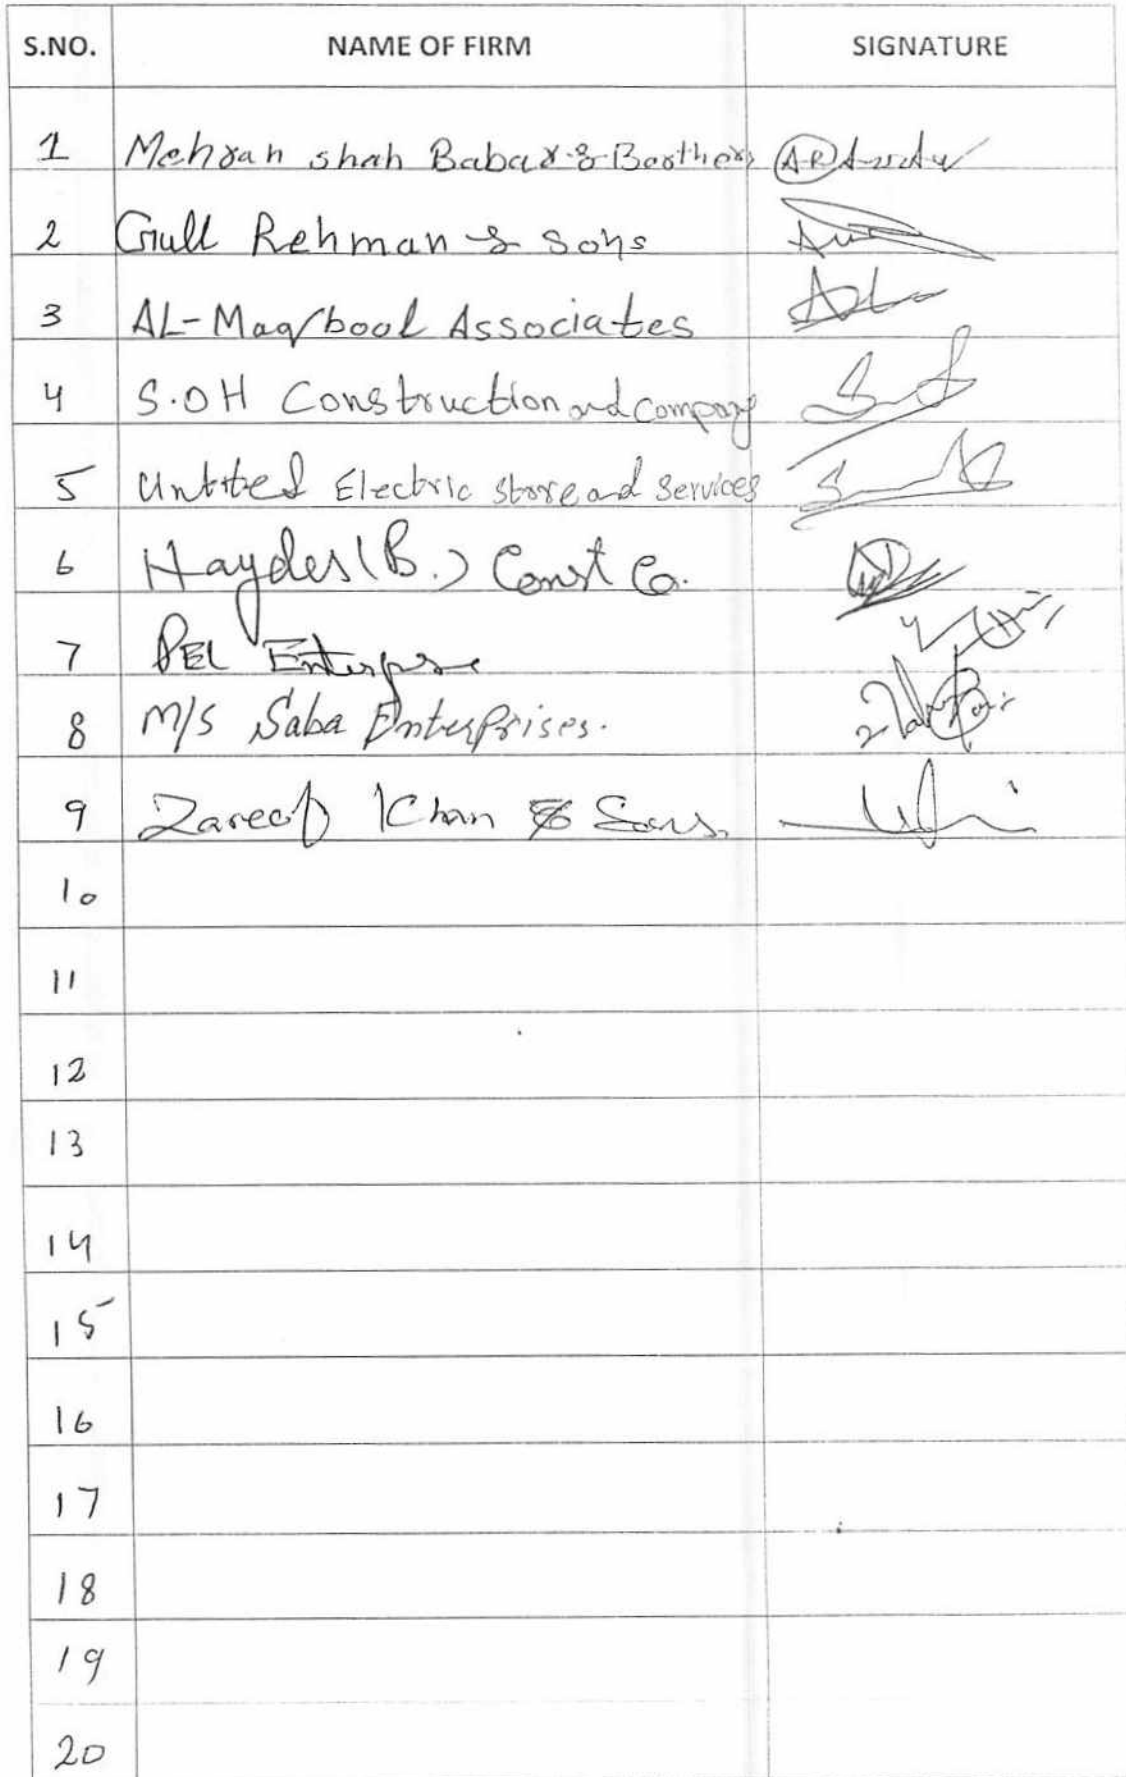 S.NO. NAME OF FIRM SIGNATURE
1 Mehran shah Babar & Brothers
2 Gull Rehman & Sons
3 AL-Maqbool Associates
4 S.OH Construction and Company
5 Untited Electric store and Services
6 Hayder (B.) Const Co.
7 PEL Enterprse
8 M/S Saba Enterprises.
9 Zareef Khan & Sons.
10
11
12
13
14
15
16
17
18
19
20